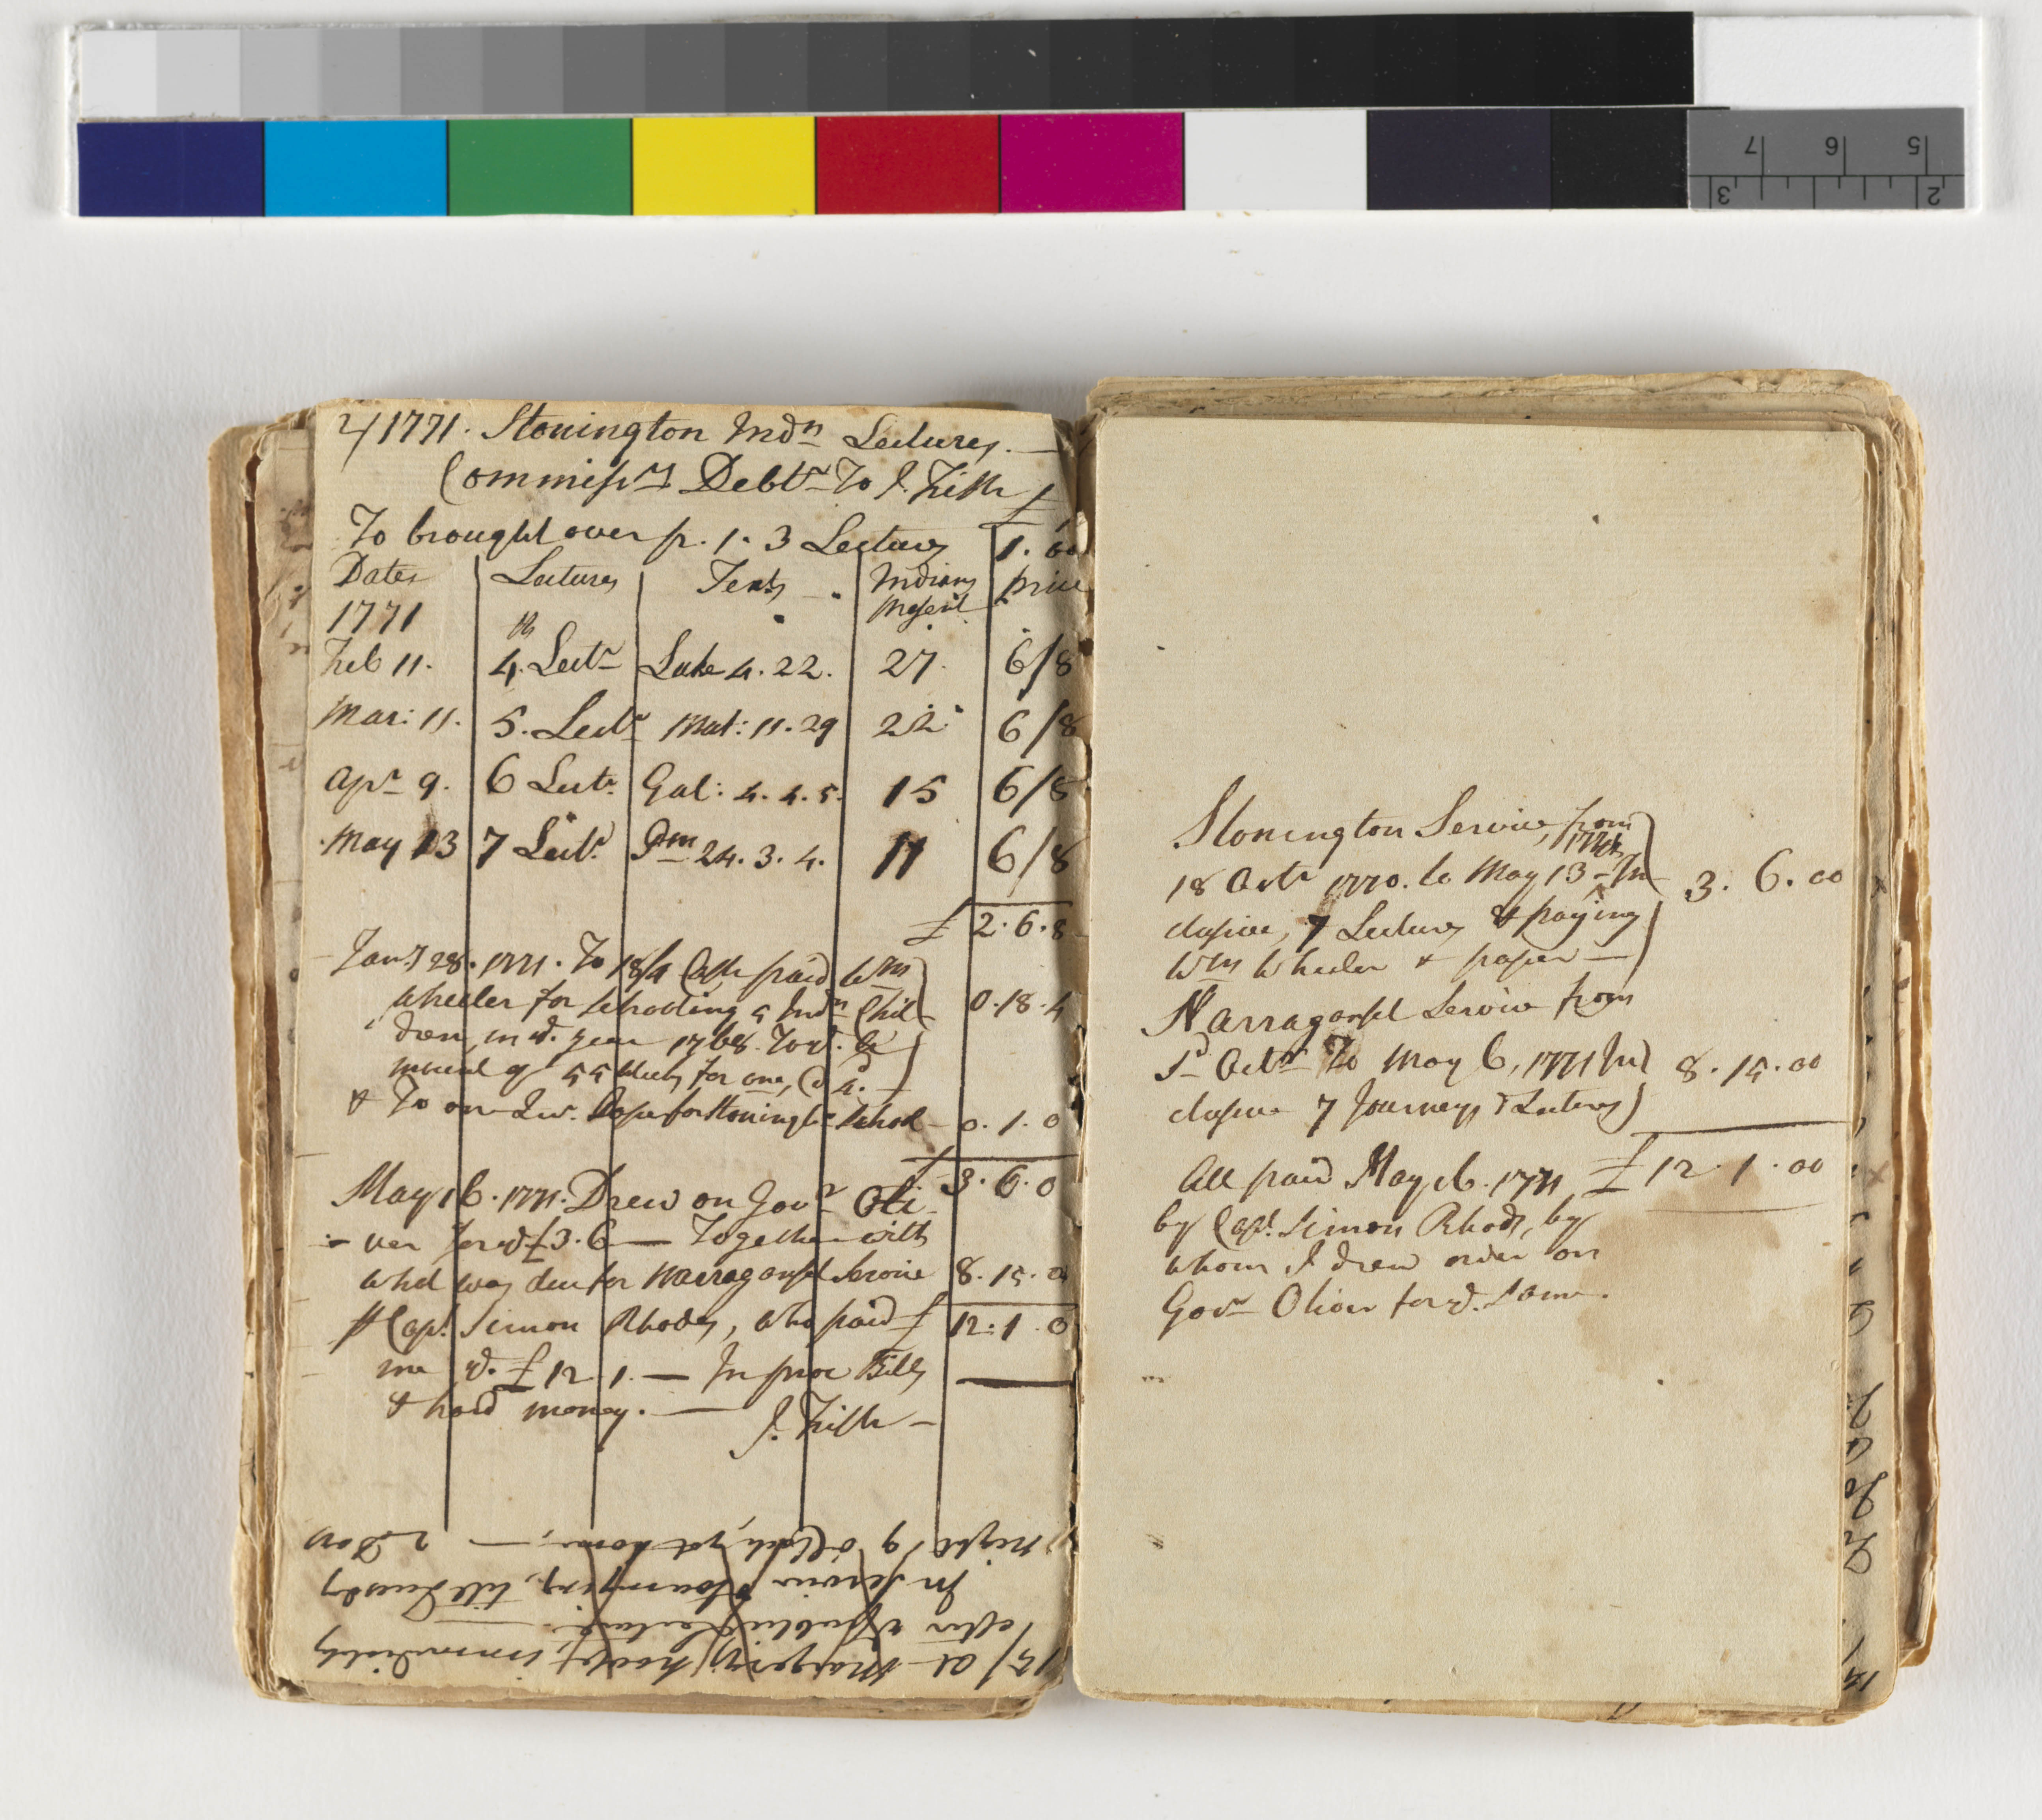 2/ 1771. Stonington Indn Lectures. —
Commissrs Debtr To J. Fish £
To brought over p. 1. 3 Lectures 1. 00
Dates Lectures Texts Indians present price
1771
Feb 11. 4th Lectr Luke 4. 22. 27. 6/8
Mar: 11. 5. Lectr Mat: 11. 29 22 6/8
Apr 9. 6 Lectr Gal: 4. 4. 5. 15 6/8
May 13 7 Lectr Psm 24. 3. 4. 11 6/8
£ 2. 6. 8
Jany 28. 1771. To 18/4 Cash paid Wm
Wheeler for schooling 5 Indn Chil 0. 18. 4
dren, in ye. year 1768. To ye.
mount of 55 Weeks for one, @ 4d. —
& To one Qur. Paper for Stoningtn School 0. 1. 0
£ 3. 6. 0
May 16. 1771. Drew on Govr Oli
- ver for ye £3. 6 — Together with
what was due for Narraganset Service 8. 15. 0
pr Capt. Simon Rhodes, who paid £ 12. 1. 0
me ye. £12. 1. — In prov Bills
& hard money. — J. Fish —
15/ at Margery's house, immediately
after ye public Lecture. —
In service & journeying, till Tuesday
night, 9 oClock, got home, — 2 Days
Stonington Service, from
18 Octr 1770. to May 13 - 1771 In
clusive, 7 Lectures & paying
Wm Wheeler & paper —
3. 6. 00
Narraganset Service from
1st Octr To May 6, 1771 In
clusive 7 Journeys & Lectures
8. 15. 00
All paid May 16. 1771 £ 12. 1. 00
by Capt. Simon Rhods, by
whom I drew order on
Govr Oliver for ye. same.